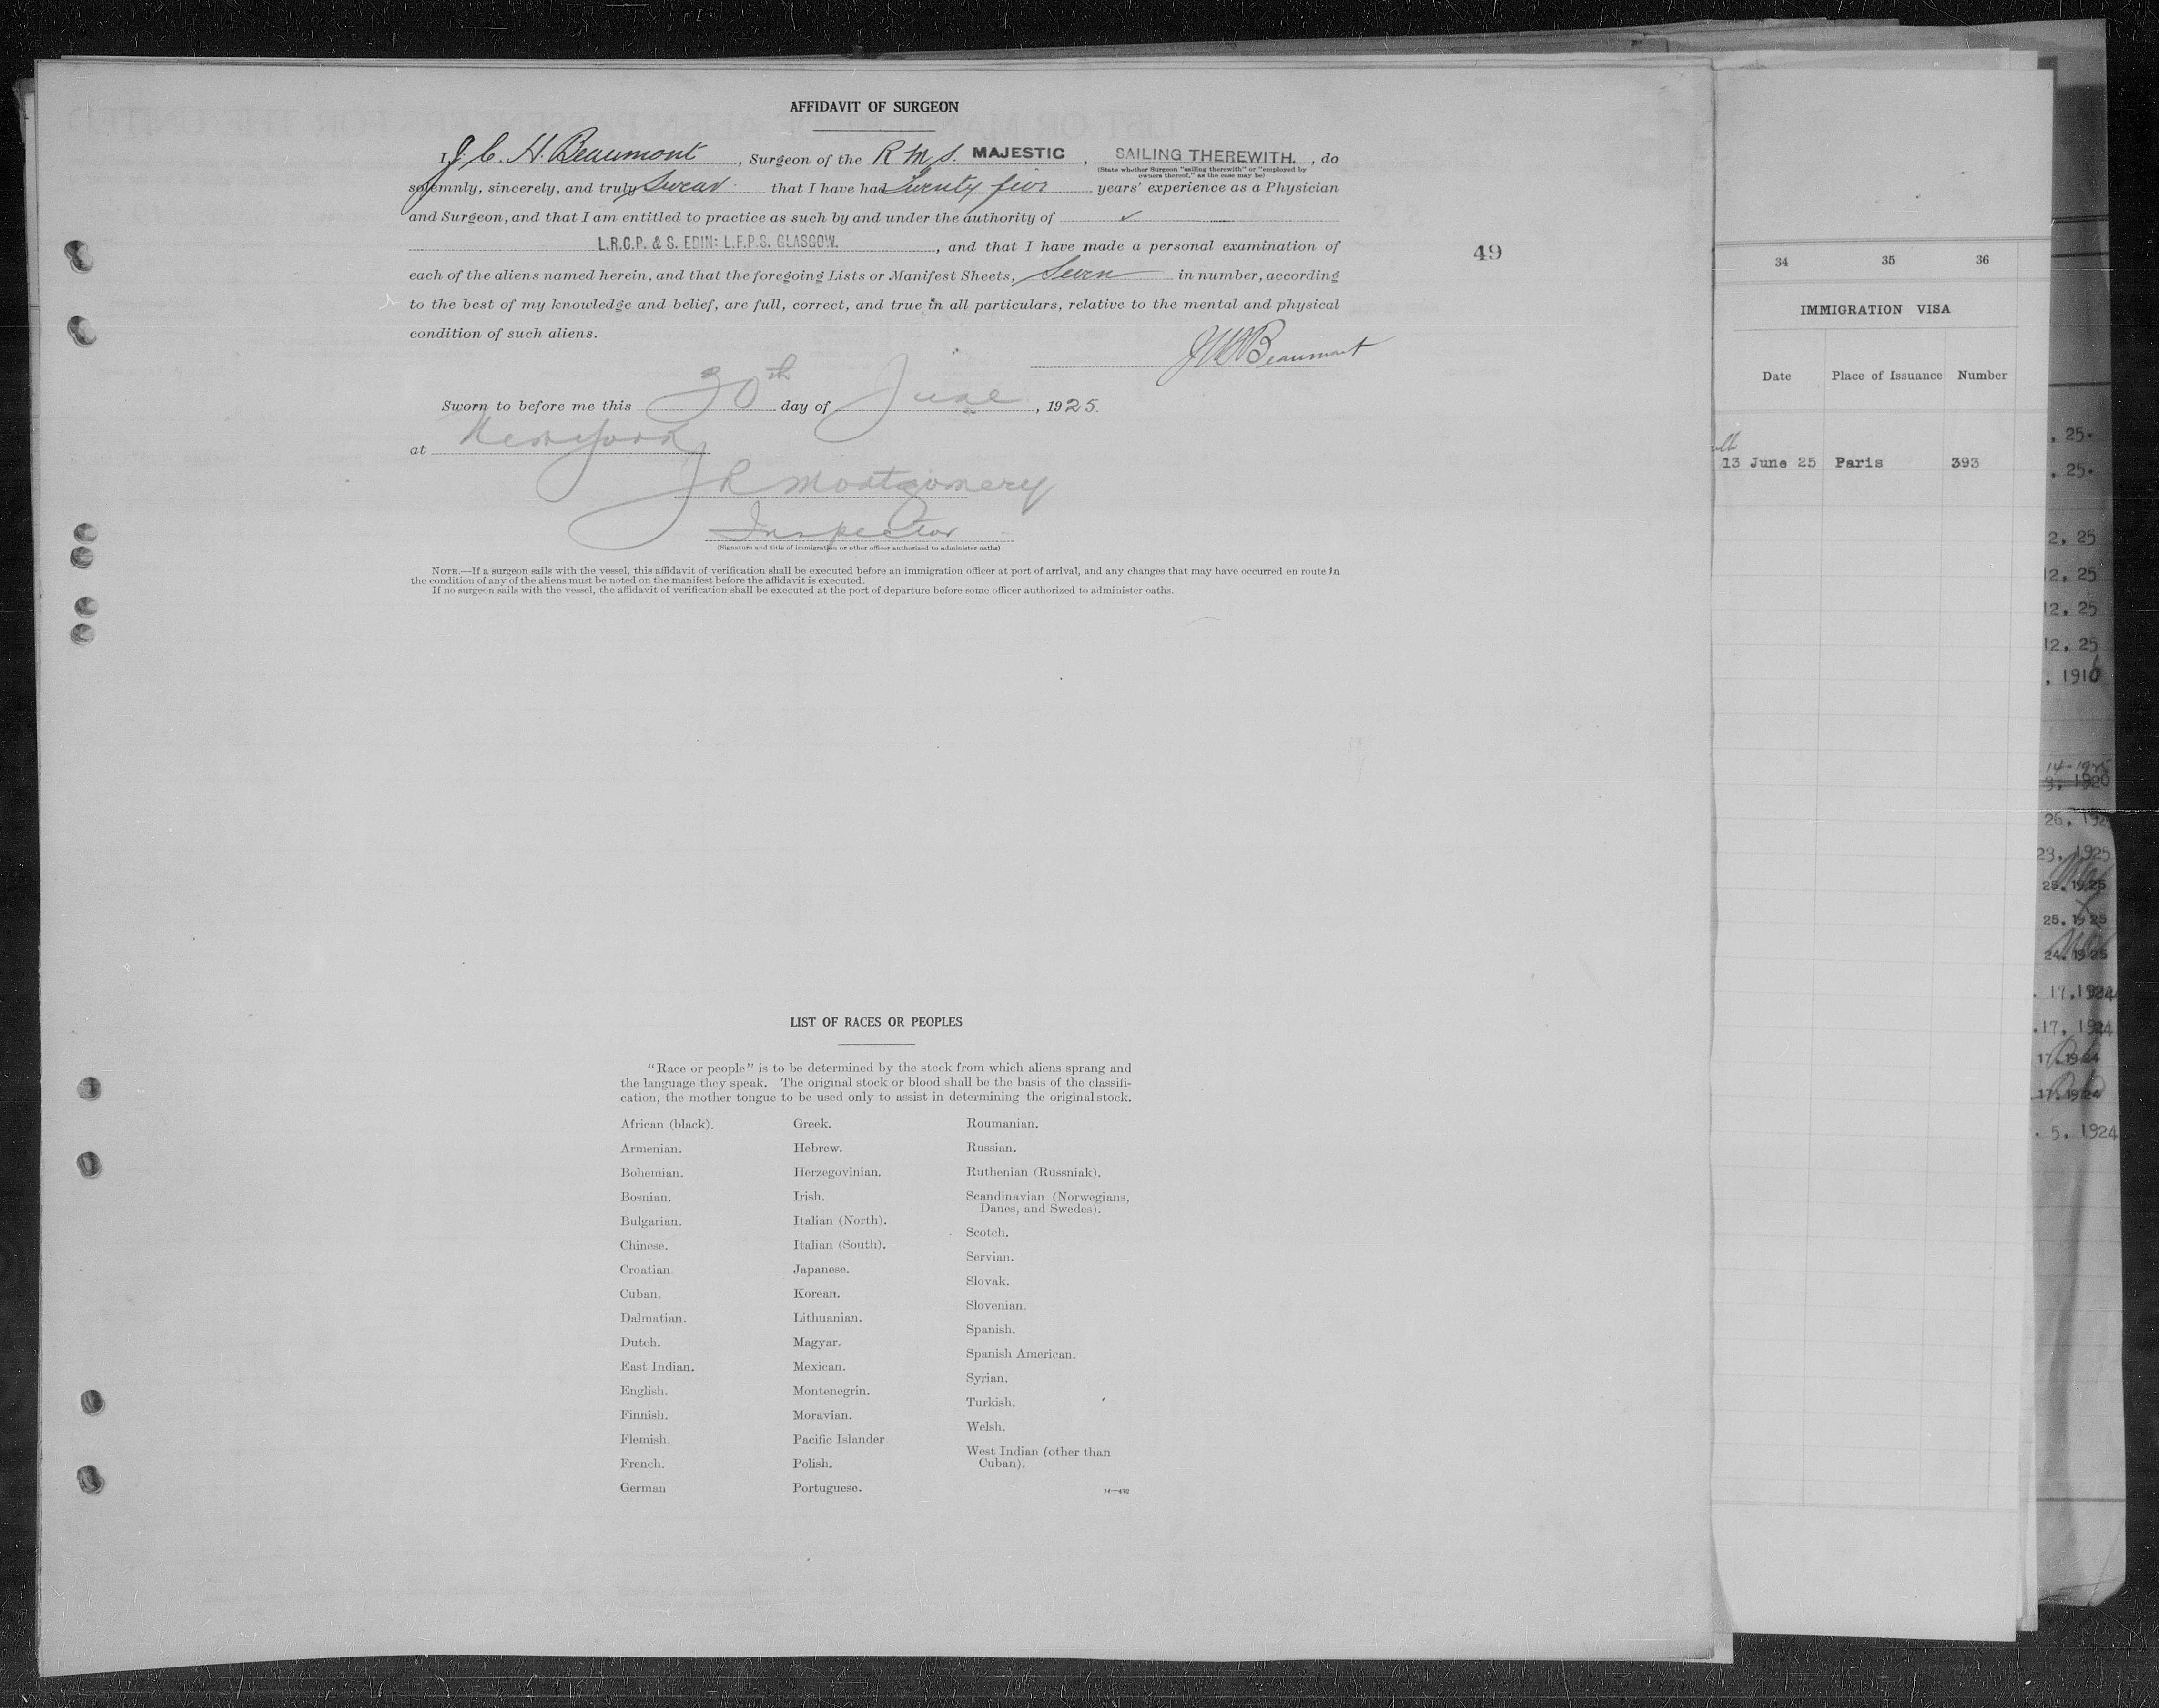 AFFIDAVIT OF SURGEON
I, J. C. H. Beaumont, Surgeon of the R.M.S. MAJESTIC, SAILING THEREWITH., do
(State whether Surgeon "sailing therewith" or "employed by
owners thereof," as the case may be)
solemnly, sincerely, and truly Swear that I have had Twenty five years' experience as a Physician
and Surgeon, and that I am entitled to practice as such by and under the authority of
L.R.C.P. & S. EDIN: L.F.P.S. GLASGOW., and that I have made a personal examination of
each of the aliens named herein, and that the foregoing Lists or Manifest Sheets, Seven in number, according
to the best of my knowledge and belief, are full, correct, and true in all particulars, relative to the mental and physical
condition of such aliens.
Beaumont
Sworn to before me this 30th day of June, 1925.
at New York
J R Montgomery
Inspector
(Signature and title of immigration or other officer authorized to administer oaths)
NOTE.—If a surgeon sails with the vessel, this affidavit of verification shall be executed before an immigration officer at port of arrival, and any changes that may have occurred en route in
the condition of any of the aliens must be noted on the manifest before the affidavit is executed.
If no surgeon sails with the vessel, the affidavit of verification shall be executed at the port of departure before some officer authorized to administer oaths.
49
LIST OF RACES OR PEOPLES
"Race or people" is to be determined by the stock from which aliens sprang and
the language they speak. The original stock or blood shall be the basis of the classifi-
cation, the mother tongue to be used only to assist in determining the original stock.
African (black).
Armenian.
Bohemian.
Bosnian.
Bulgarian.
Chinese.
Croatian
Cuban.
Dalmatian.
Dutch.
East Indian.
English.
Finnish.
Flemish.
French.
German
Greek.
Hebrew.
Herzegovinian.
Irish.
Italian (North).
Italian (South).
Japanese.
Korean.
Lithuanian.
Magyar.
Mexican.
Montenegrin.
Moravian.
Pacific Islander
Polish.
Portuguese.
Roumanian.
Russian.
Ruthenian (Russniak).
Scandinavian (Norwegians,
Danes, and Swedes).
Scotch.
Servian.
Slovak.
Slovenian.
Spanish.
Spanish American.
Syrian.
Turkish.
Welsh.
West Indian (other than
Cuban).
34 35 36
IMMIGRATION VISA
Date Place of Issuance Number
13 June 25 Paris 393
, 25.
, 25.
2, 25
12, 25
12, 25
12, 25
, 1910
14-1925
9, 1920
26, 192
23, 1925
25. 1925
25. 1925
24. 1925
. 17, 1924
.17, 1924
17. 1924
17. 1924
. 5, 1924